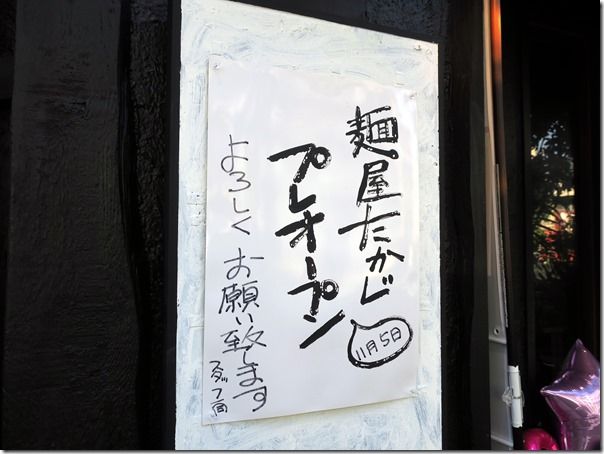 麺屋たかじ
11月5日
プレオープン
よろしくお願い致します
スタッフ一同